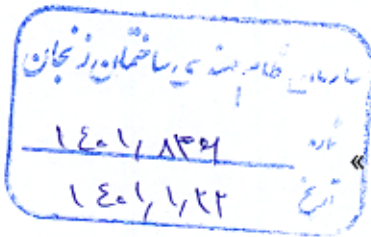 سازمان نظام مهندسی ساختمان زنجان
شماره ۱۴۰۱٫۸۳۶
«
تاریخ ۱۴۰۱٫۱٫۲۲